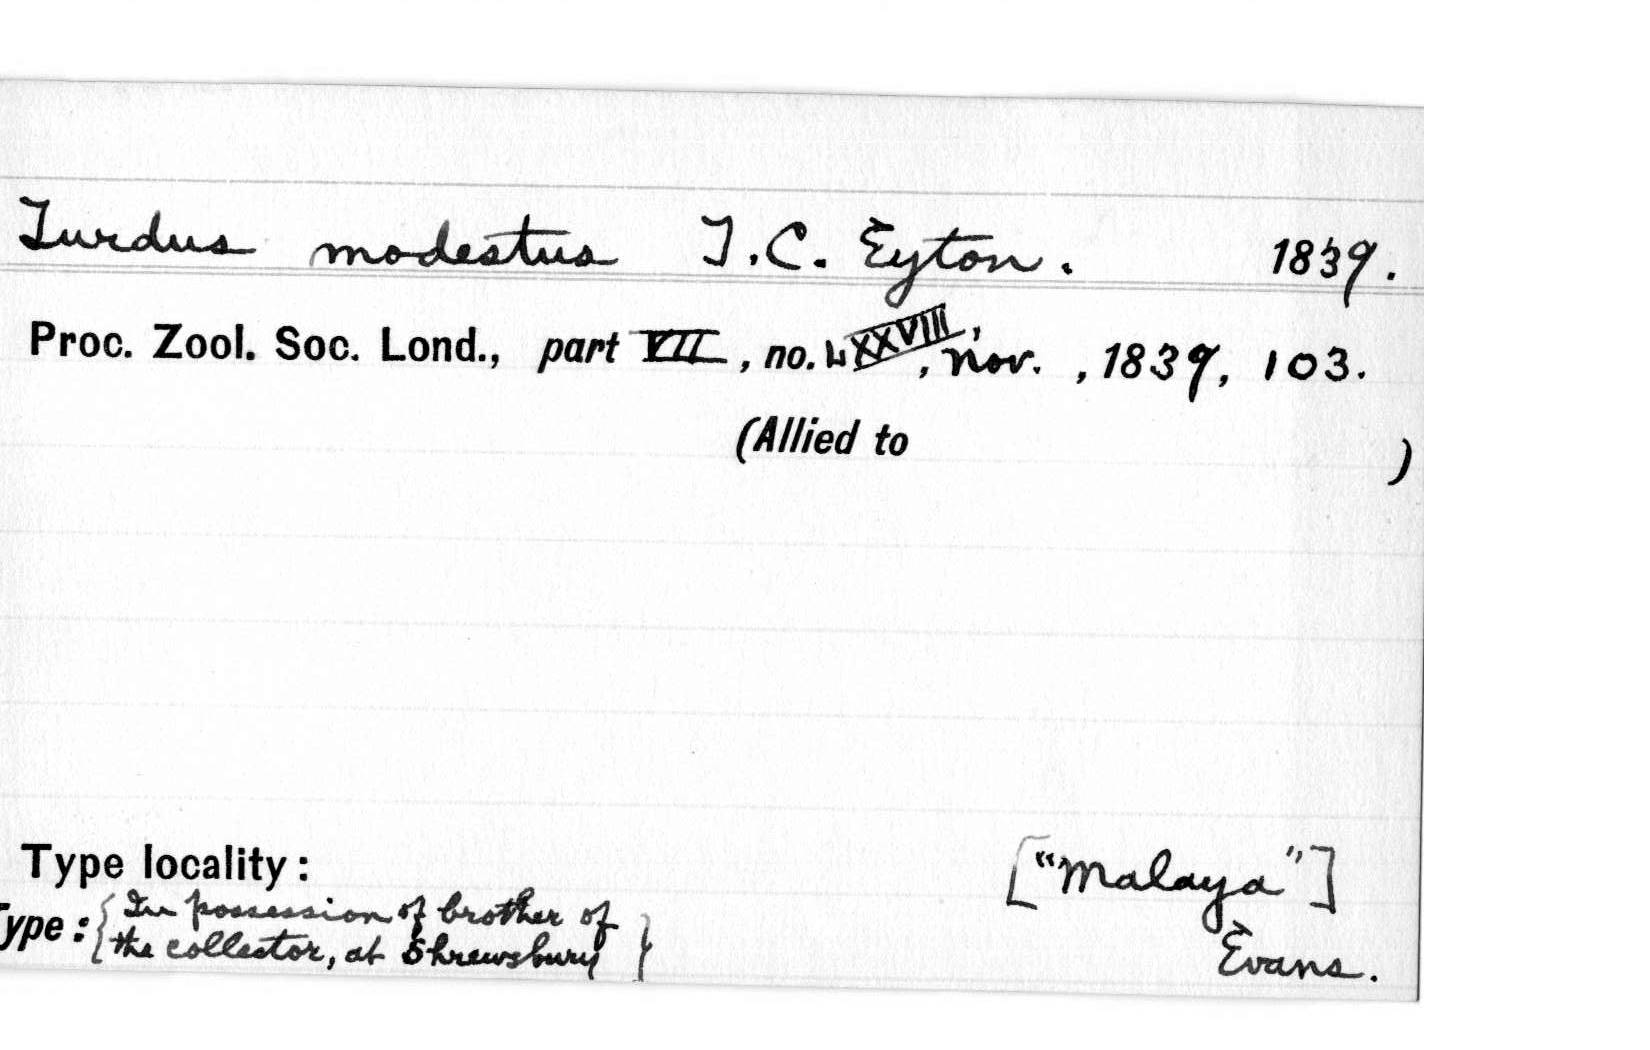 Turdus modestus T.C. Eyton. 1839.
Proc. Zool. Soc. Lond., part VII, no. LXXXVIII, Nov., 1839, 103.
(Allied to )
Type locality: ["Malaya"]
Type: {In possession of brother of
the collector, at Shrewsbury}
Evans.